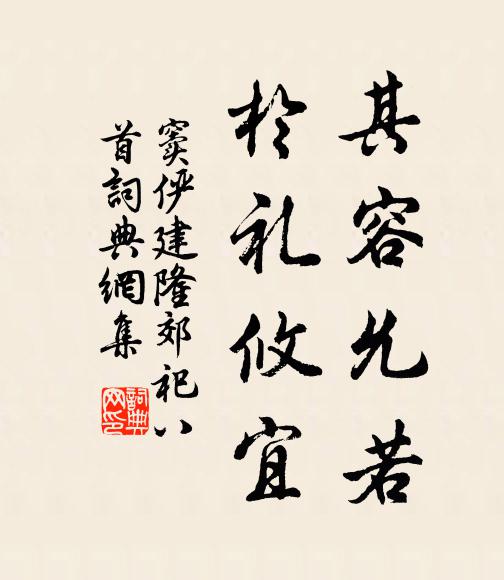 其容允若
於礼攸宜
窦俨建隆郊祀八
首詞典網集
詞典網印